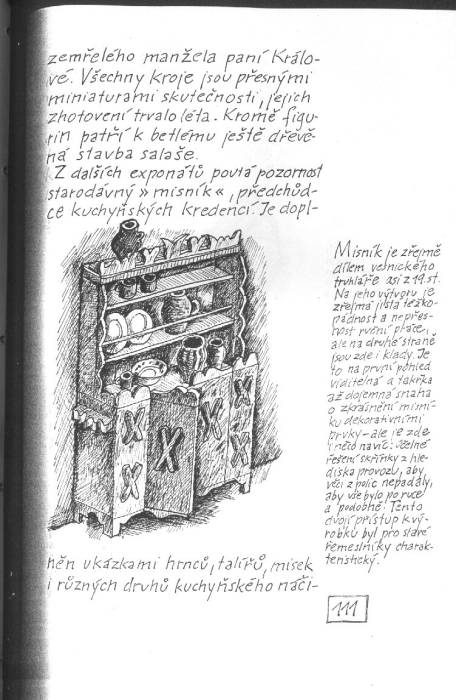 zemřelého manžela paní Králo-
vé. Všechny kroje jsou přesnými
miniaturami skutečnosti, jejich
zhotovení trvalo léta. Kromě figu-
rin patří k betlému ještě dřevě-
ná stavba salaše.
Z dalších exponátů poutá pozornost
starodávný »misník«, předchůd-
ce kuchyňských kredencí. Je dopl-
něn ukázkami hrnců, talířů, misek
i různých druhů kuchyňského náči-
Misník je zřejmě
dílem velnického
truhláře asi z 19. st.
Na jeho výtvoru je
zřejmá jistá těžko-
pádnost a nepřes-
nost ruční práce,
ale na druhé straně
jsou zde i klady. Je
to na první pohled
viditelná a takřka
až dojemná snaha
o zkrášlení misní-
ku dekorativními
prvky - ale je zde
i něco navíc: účelné
řešení skříňky z hle-
diska provozu, aby
věci z polic nepadaly,
aby vše bylo po ruce
a podobně. Tento
dvojí přístup k vý-
robku byl pro staré
řemeslníky charak-
teristický.
111